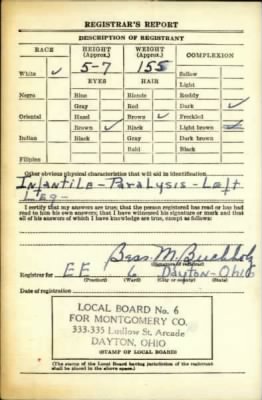 REGISTRAR'S REPORT
DESCRIPTION OF REGISTRANT
RACE HEIGHT (Approx.) WEIGHT (Approx.) COMPLEXION
White ✓ 5-7 155 Sallow
EYES HAIR Light
Negro Blue Blonde Ruddy
Gray Red Dark ✓
Oriental Hazel Brown ✓ Freckled
Brown ✓ Black Light brown
Indian Black Gray Dark brown
Bald Black
Filipino
Other obvious physical characteristics that will aid in identification
Infantile-Paralysis-Left
Leg-
I certify that my answers are true; that the person registered has read or has had
read to him his own answers; that I have witnessed his signature or mark and that
all of his answers of which I have knowledge are true, except as follows:
Bess M. Buchholz
(Signature of registrar)
Registrar for EE 6 Dayton-Ohio
(Precinct) (Ward) (City or county) (State)
Date of registration
LOCAL BOARD No. 6
FOR MONTGOMERY CO.
333-335 Ludlow St. Arcade
DAYTON, OHIO
(STAMP OF LOCAL BOARD)
(The stamp of the Local Board having jurisdiction of the registrant
shall be placed in the above space.)